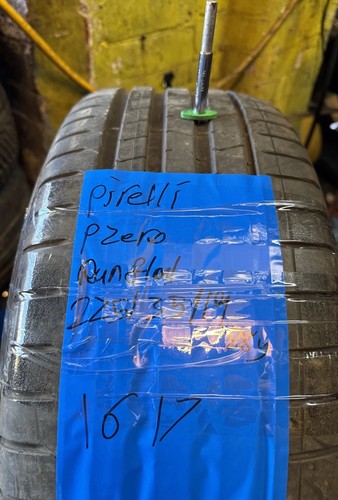 pirelli
PZero
Runflat
225/35/19
1617